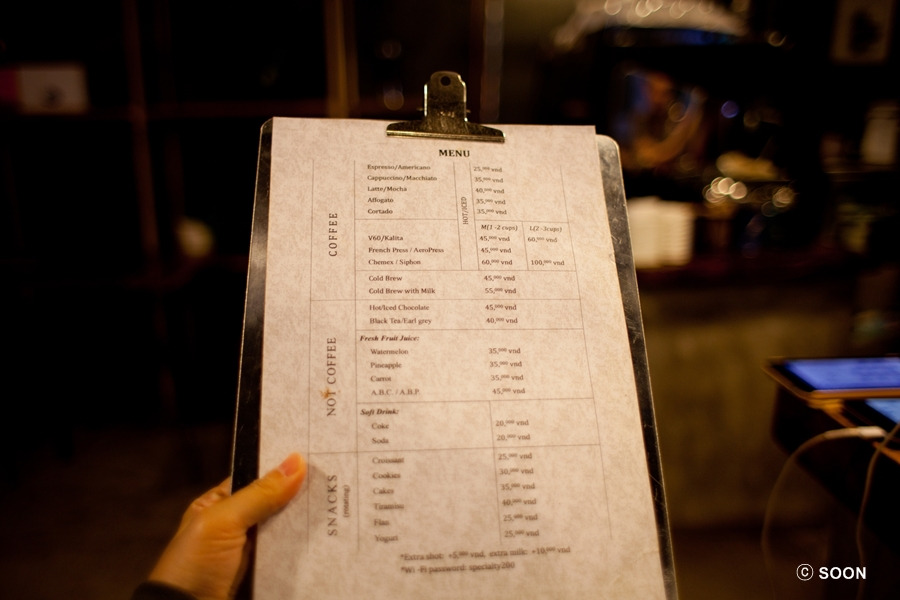 MENU
COFFEE
HOT/ICED
Espresso/Americano 25,000 vnd
Cappuccino/Macchiato 35,000 vnd
Latte/Mocha 40,000 vnd
Affogato 35,000 vnd
Cortado 35,000 vnd
M(1 -2 cups) L(2 -3cups)
V60/Kalita 45,000 vnd 60,000 vnd
French Press / AeroPress 45,000 vnd
Chemex / Siphon 60,000 vnd 100,000 vnd
Cold Brew 45,000 vnd
Cold Brew with Milk 55,000 vnd
NOT COFFEE
Hot/Iced Chocolate 45,000 vnd
Black Tea/Earl grey 40,000 vnd
Fresh Fruit Juice:
Watermelon 35,000 vnd
Pineapple 35,000 vnd
Carrot 35,000 vnd
A.B.C. / A.B.P. 45,000 vnd
Soft Drink:
Coke 20,000 vnd
Soda 20,000 vnd
SNACKS
Croissant 25,000 vnd
Cookies 30,000 vnd
Cakes 35,000 vnd
Tiramisu 40,000 vnd
Flan 25,000 vnd
Yogurt 25,000 vnd
*Extra shot: +5,000 vnd, extra milk: +10,000 vnd
*Wi -Fi password: specialty280
© SOON